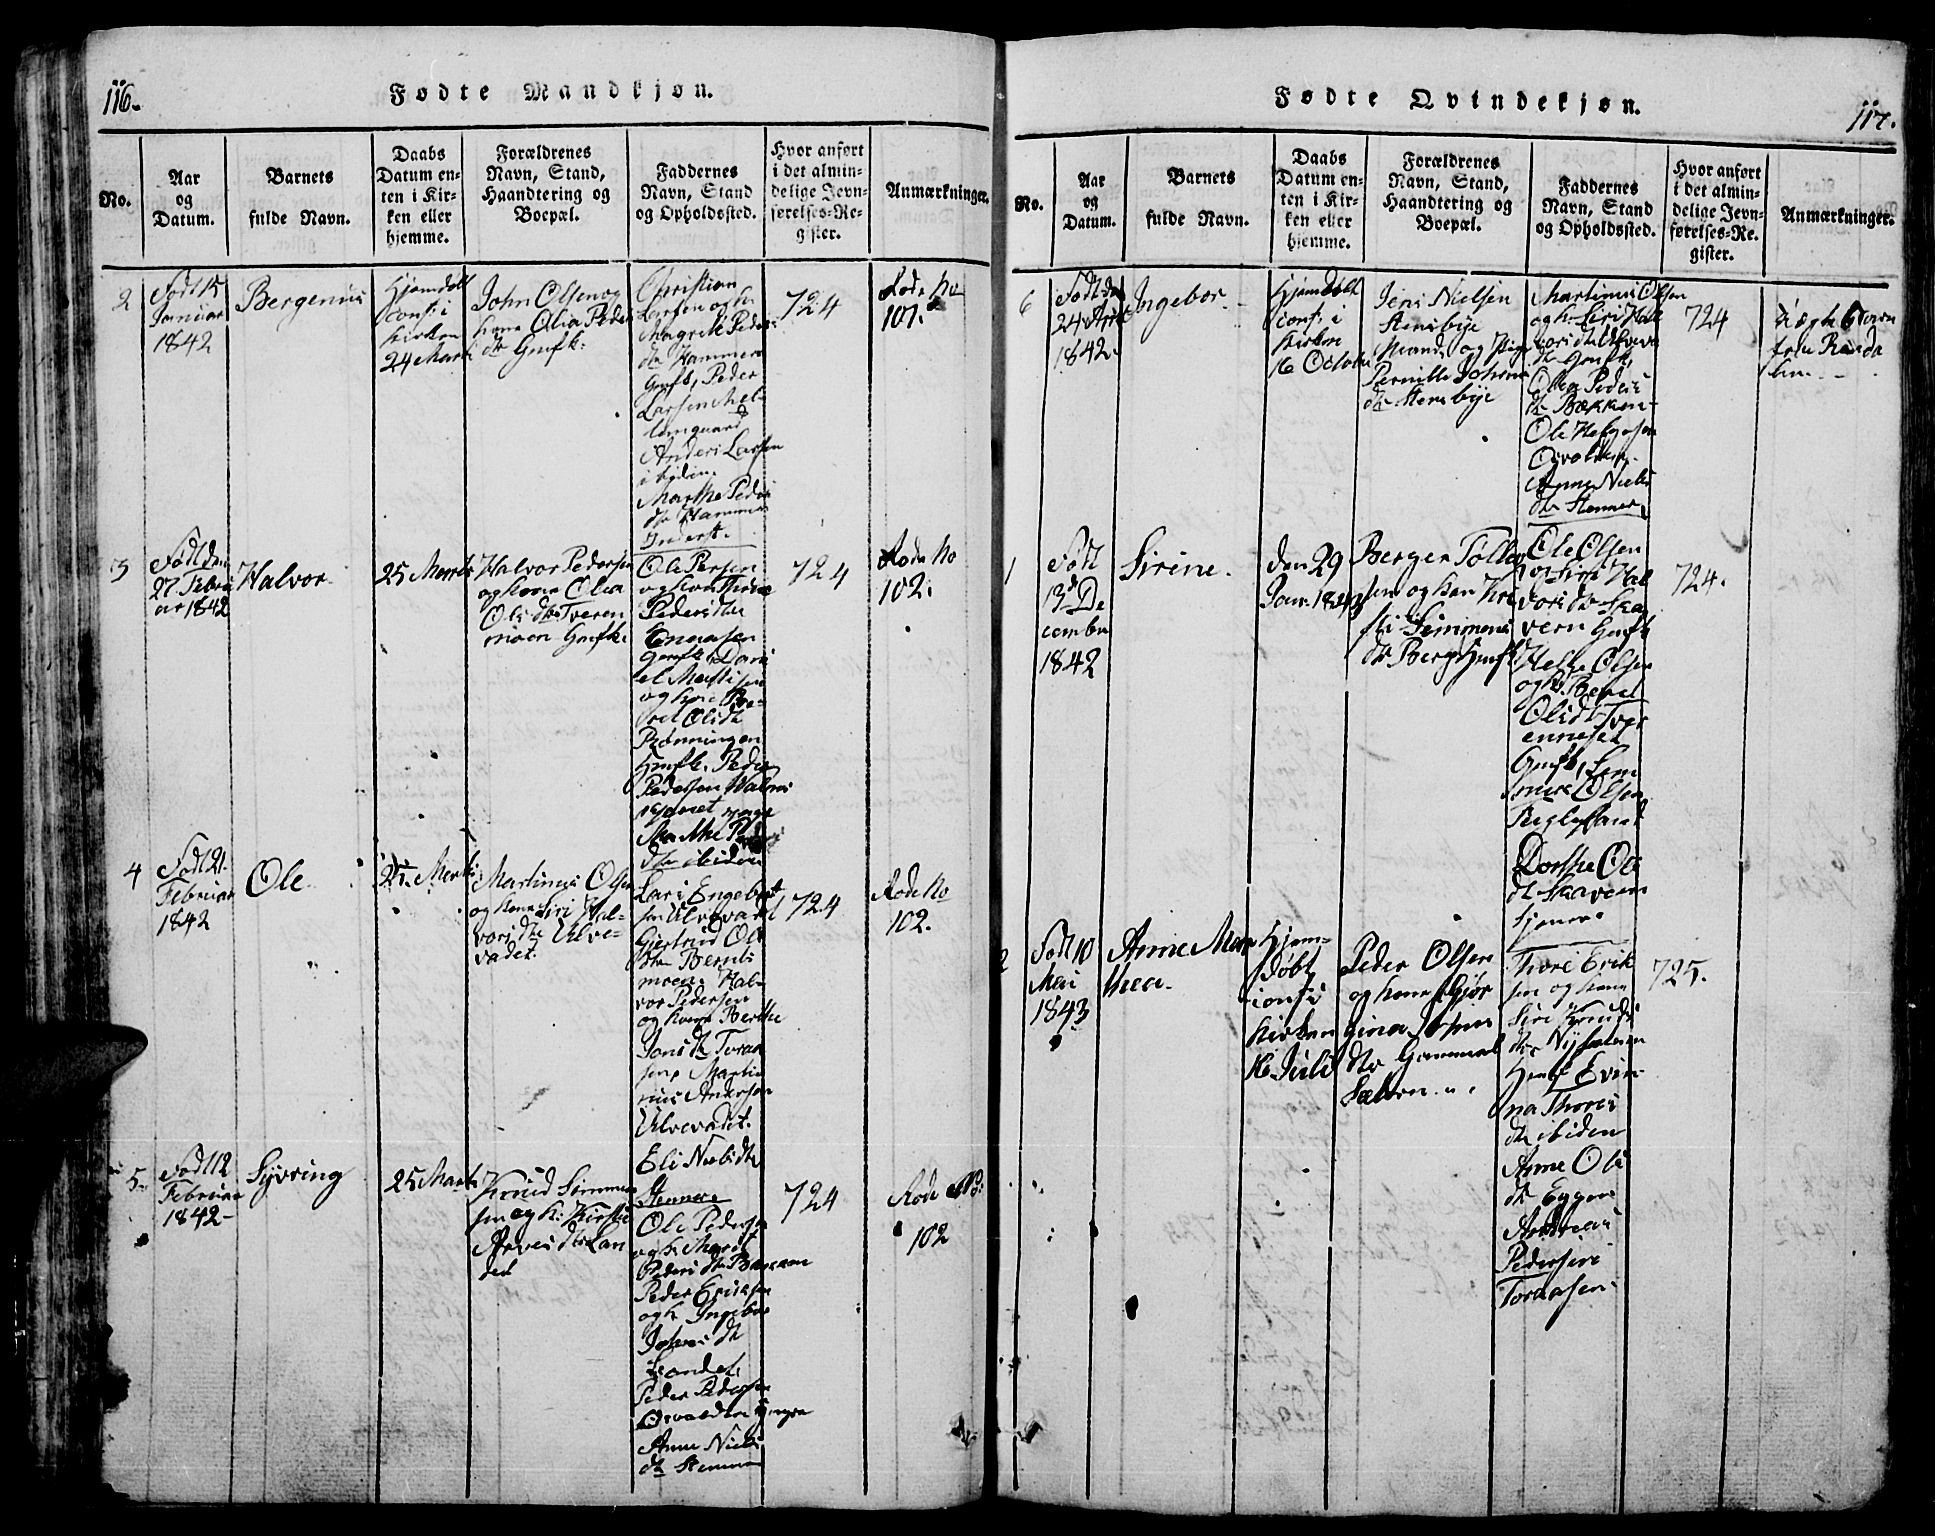 116.
Fødte Mandkjøn.
No.
Aar
og
Datum.
Barnets
fulde Navn.
Daabs
Datum en-
ten i Kir-
ken eller
hjemme.
Forældrenes
Navn, Stand,
Haandtering og
Boepæl.
Faddernes
Navn, Stand
og Opholdssted.
Hvor anført
i det almin-
delige Jevn-
førelses-Re-
gister.
Anmærkninger.
2
Født 15
Januar
1842
Bergenius
Hjemdøbt
conf: i
Kirken
24 Marts
John Olsen og
Kone Olia Peders
dtr Gmfk:
Christian
Larsen og ko
Magrete Peders
dtr Hammers
Gmfk, Peder
Larsen
Anders Larsen
ibiden
Marthe Peders
dtr Hammer
724
Rode No
101.
3
Født den
27 Febru
ar 1842
Halvor
25 Marts
Halvor Pedersen
og Kone Olia
Ols dtr Tveren
moen Gmfk.
Ole Persen
og kone
Peders dtr
Enaasen
Gmfk, Dani
el Mathisen
og kone
Ols dtr
Rønningen
Hmfk. Peder
Pedersen
Marthe Peders
dtr ibiden
724
Rode No
102.
4
Født 21.
Februar
1842
Ole
25. Marts
Martinus Olsen
og Kone Siri Hal-
vors dtr Ulve-
vadet.
Lars Engebret
sen Ulvevadet
Gjertrud Ols
dtr Bernts
moen. Hal-
vor Pedersen
og kone Berthe
Jons dtr Toraa
sen, Marti
nus Andersen
Ulvevadet.
Eli Niels dtr
Stenner
724
Rode No
102.
5.
Født 12
Februar
1842-
Syvring
25 Marts
Knud Simmen
sen og K: Kirsti
Arves dtr Lan
det
Ole Pedersen
og k. Marit
Peders dtr
Peder Eriksen
og k Ingebor
Johns dtr
Landet,
Peder Pedersen
Osvolden
Anne Niels
dtr Stenner
724
Rode No:
102
Fødte Qvindekjøn.
117.
No.
Aar
og
Datum.
Barnets
fulde Navn.
Daabs
Datum en-
ten i Kir-
ken eller
hjemme.
Forældrenes
Navn, Stand,
Haandtering og
Boepæl.
Faddernes
Navn, Stand
og Opholdssted.
Hvor anført
i det almin-
delige Jevn-
førelses-Re-
gister.
Anmærkninger.
6
Født den
24 April
1842.
Ingebor
Hjemdøbt
conf: i
Kirken
16 October
Jens Nielsen
Stensbye
og Pige
Pernille Johns
dtr Stensbye
Martinus Olsen
og k. Siri Hal
vors dtr Ulveva
dt Gmfk,
Olia Peders
dtr Bækken-
Ole Helgesen
Osvolden.
Anne Niels
dtr Stenner
724
1
Født
13de De
cember
1842
Sirine.
den 29
Jan. 1843
Berger Tolle
sen og kon Kir
sti Simmens
dtr Berg Gmfk
Ole Olsen
og Siri Hal
vors dtr Ska
vern Gmfk
Helge Olsen
og K. Beret
Ols dtr Tver
enneset
Gmfk, Sim
men Olsen
Dorthe Ols
dtr Skavern
tjener.
724.
2
Født 10
Mai
1843
Anne Mar
thea.
Hjem-
døbt
conf: i
Kirken
16 Juli
Peder Olsen
og kone Gjør
gina Johns
dtr Gammel
Sætren
Thore Erik
sen og kone
Siri Knuds
dtr Nysætren
Hmfk Evin-
na Thores
dtr ibiden
Anne Ols
dtr Eggen
Andreas
Pedersen
Toraasen.
725.